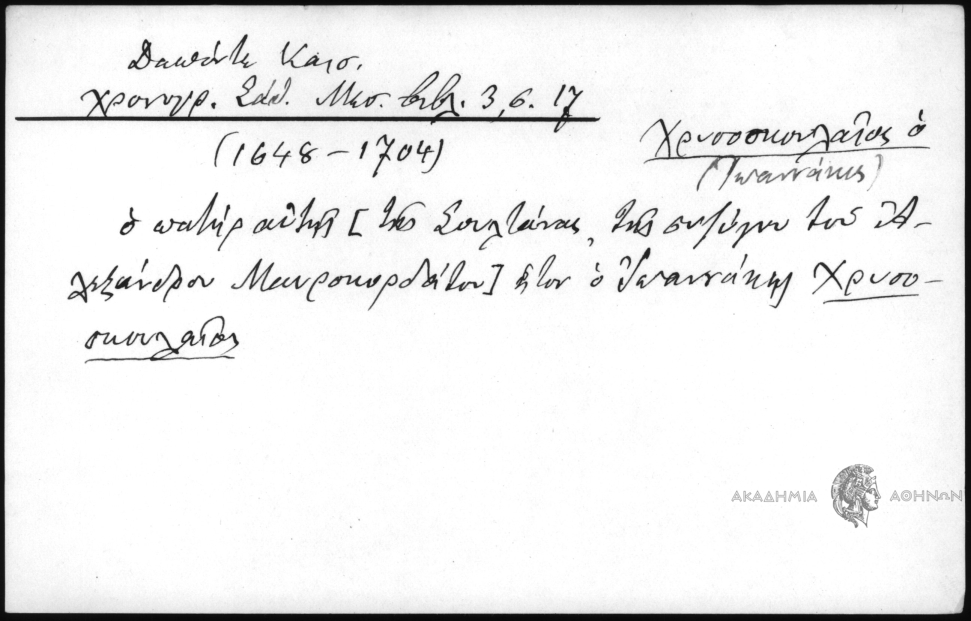 Δαπόντε Καισ.
χρονογρ. Σάθ. Μεσ. βιβλ. 3, σ. 17
(1648 – 1704)
Χρυσοσκουλαῖος ὁ
(Ἰωαννάκης)
ὁ πατήρ αὐτῆς [τῆς Σουλτάνας, τῆς συζύγου τοῦ Ἀ-
λεξάνδρου Μαυροκορδάτου] ἦτον ὁ Ἰωαννάκης Χρυσο-
σκουλαῖος
ΑΚΑΔΗΜΙΑ ΑΘΗΝΩΝ